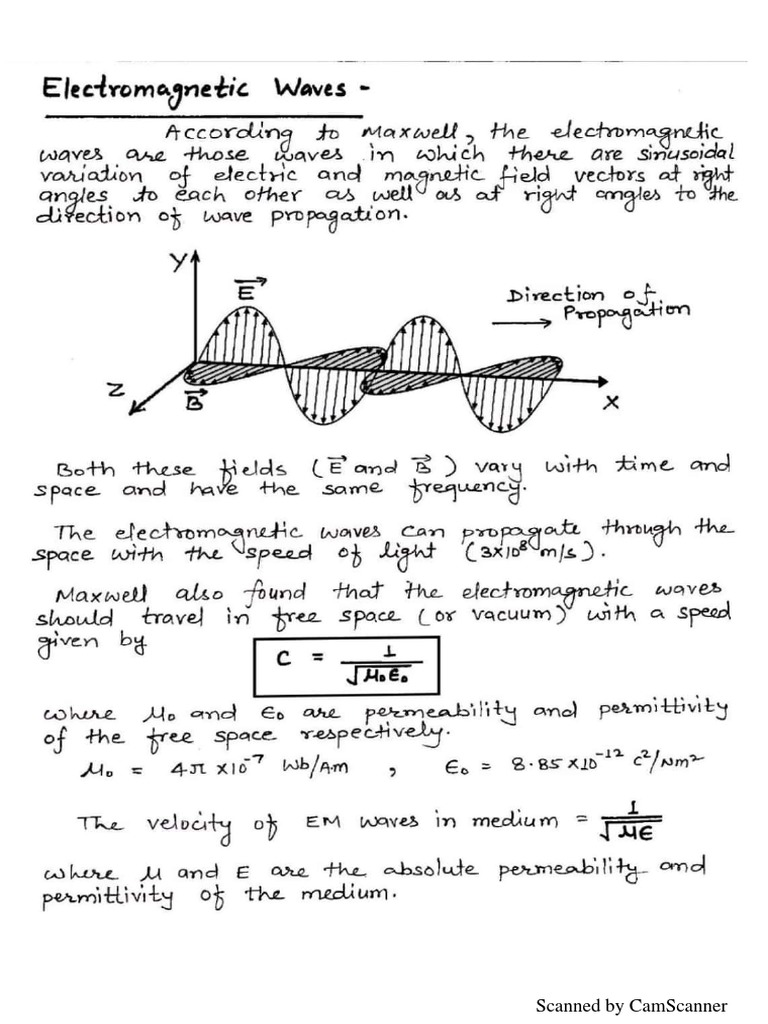 Electromagnetic Waves -
According to Maxwell, the electromagnetic
waves are those waves in which there are sinusoidal
variation of electric and magnetic field vectors at right
angles to each other as well as at right angles to the
direction of wave propagation.
Y
E⃗
Direction of
Propagation
Z
B⃗
X
Both these fields (E⃗ and B⃗) vary with time and
space and have the same frequency.
The electromagnetic waves can propagate through the
space with the speed of light (3×10⁸ m/s).
Maxwell also found that the electromagnetic waves
should travel in free space (or vacuum) with a speed
given by
C = 1/√μ₀ε₀
where μ₀ and ε₀ are permeability and permittivity
of the free space respectively.
μ₀ = 4π×10⁻⁷ Wb/Am , ε₀ = 8.85×10⁻¹² C²/Nm²
The velocity of EM waves in medium = 1/√με
where μ and ε are the absolute permeability and
permittivity of the medium.
Scanned by CamScanner